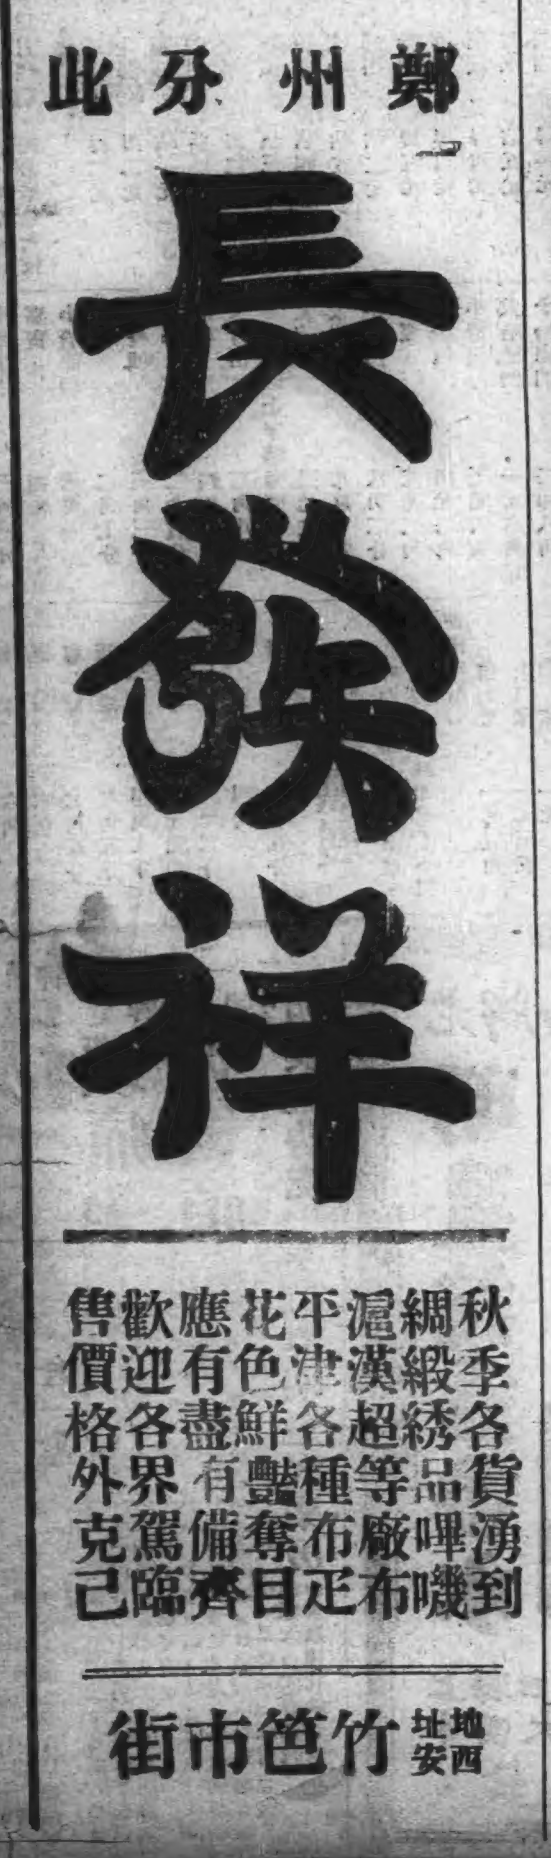 鄭州分此
長發祥
秋季各貨湧到
綢緞綉品嗶嘰
滬漢超等廠布
平津各種布疋
花色鮮豔奪目
應有盡有備齊
歡迎各界駕臨
售價格外克己
地址西安
竹笆市街